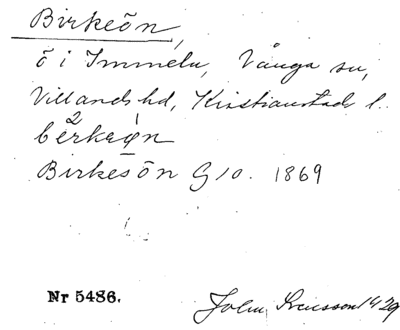 Birkeön,
ö i Immeln, Vånga sn,
Villands hd, Kristianstads l.
bèrkeøn
Birkesön G 10. 1869
Nr 5486.
John Svensson 1929